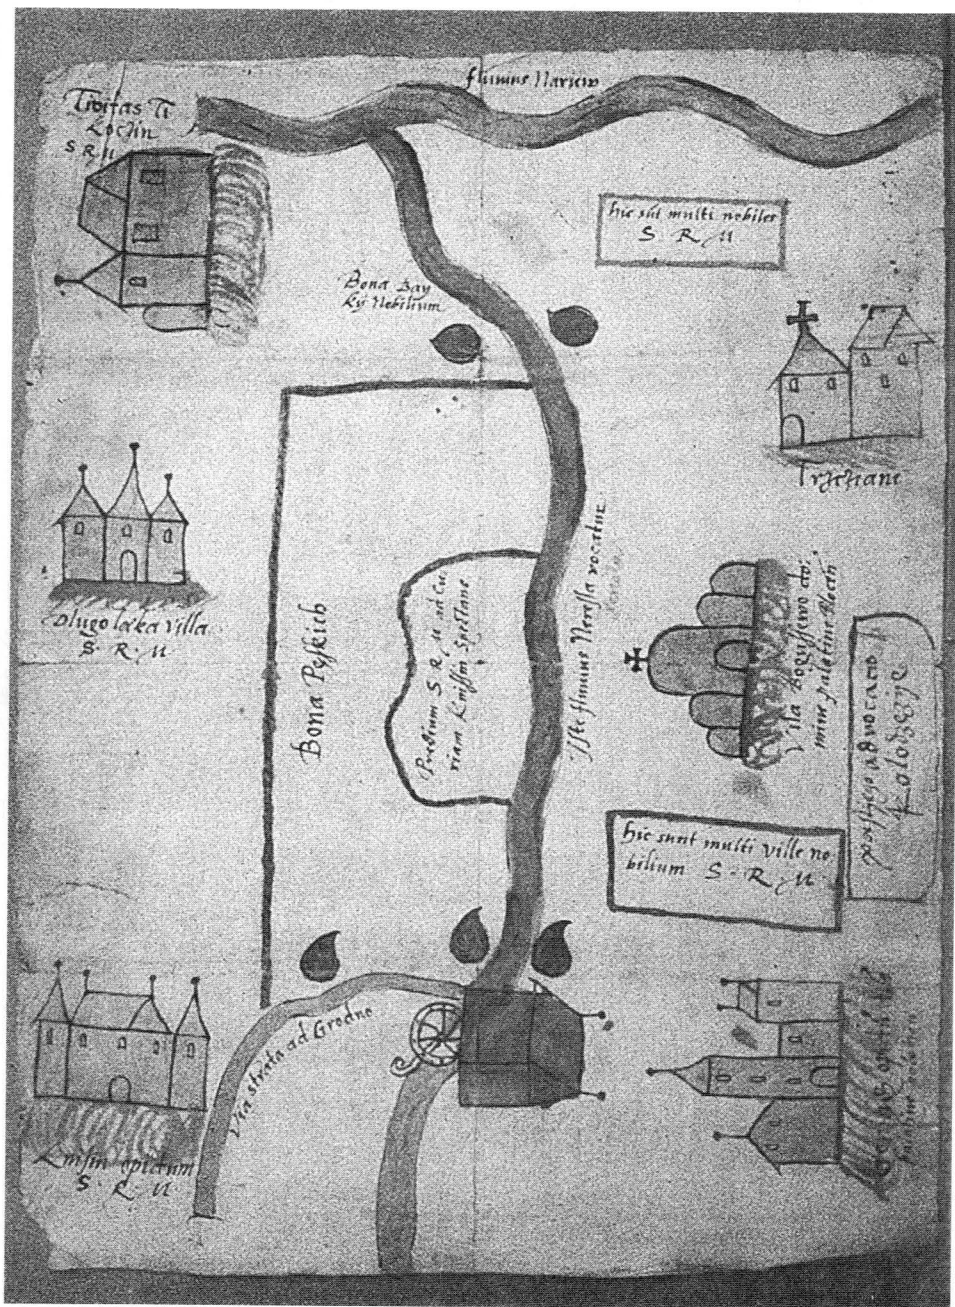 fluuius Nariew
Civitas Ti
koczin
S R M
hic sūt multi nobiles
S. R. M
Bona Bay
ky Nobilium
Trzcziane
Dlugolaka villa
S. R. M
Bona Pyskich
Predium S R M ad Cu
riam Knissin Spectans
iste fluuius Neressa vocatur
Villa
mine palatine
hic sunt multi ville no
bilium S. R. M
advocato
Via strata ad Grodno
Knisin opidum
S. R. M